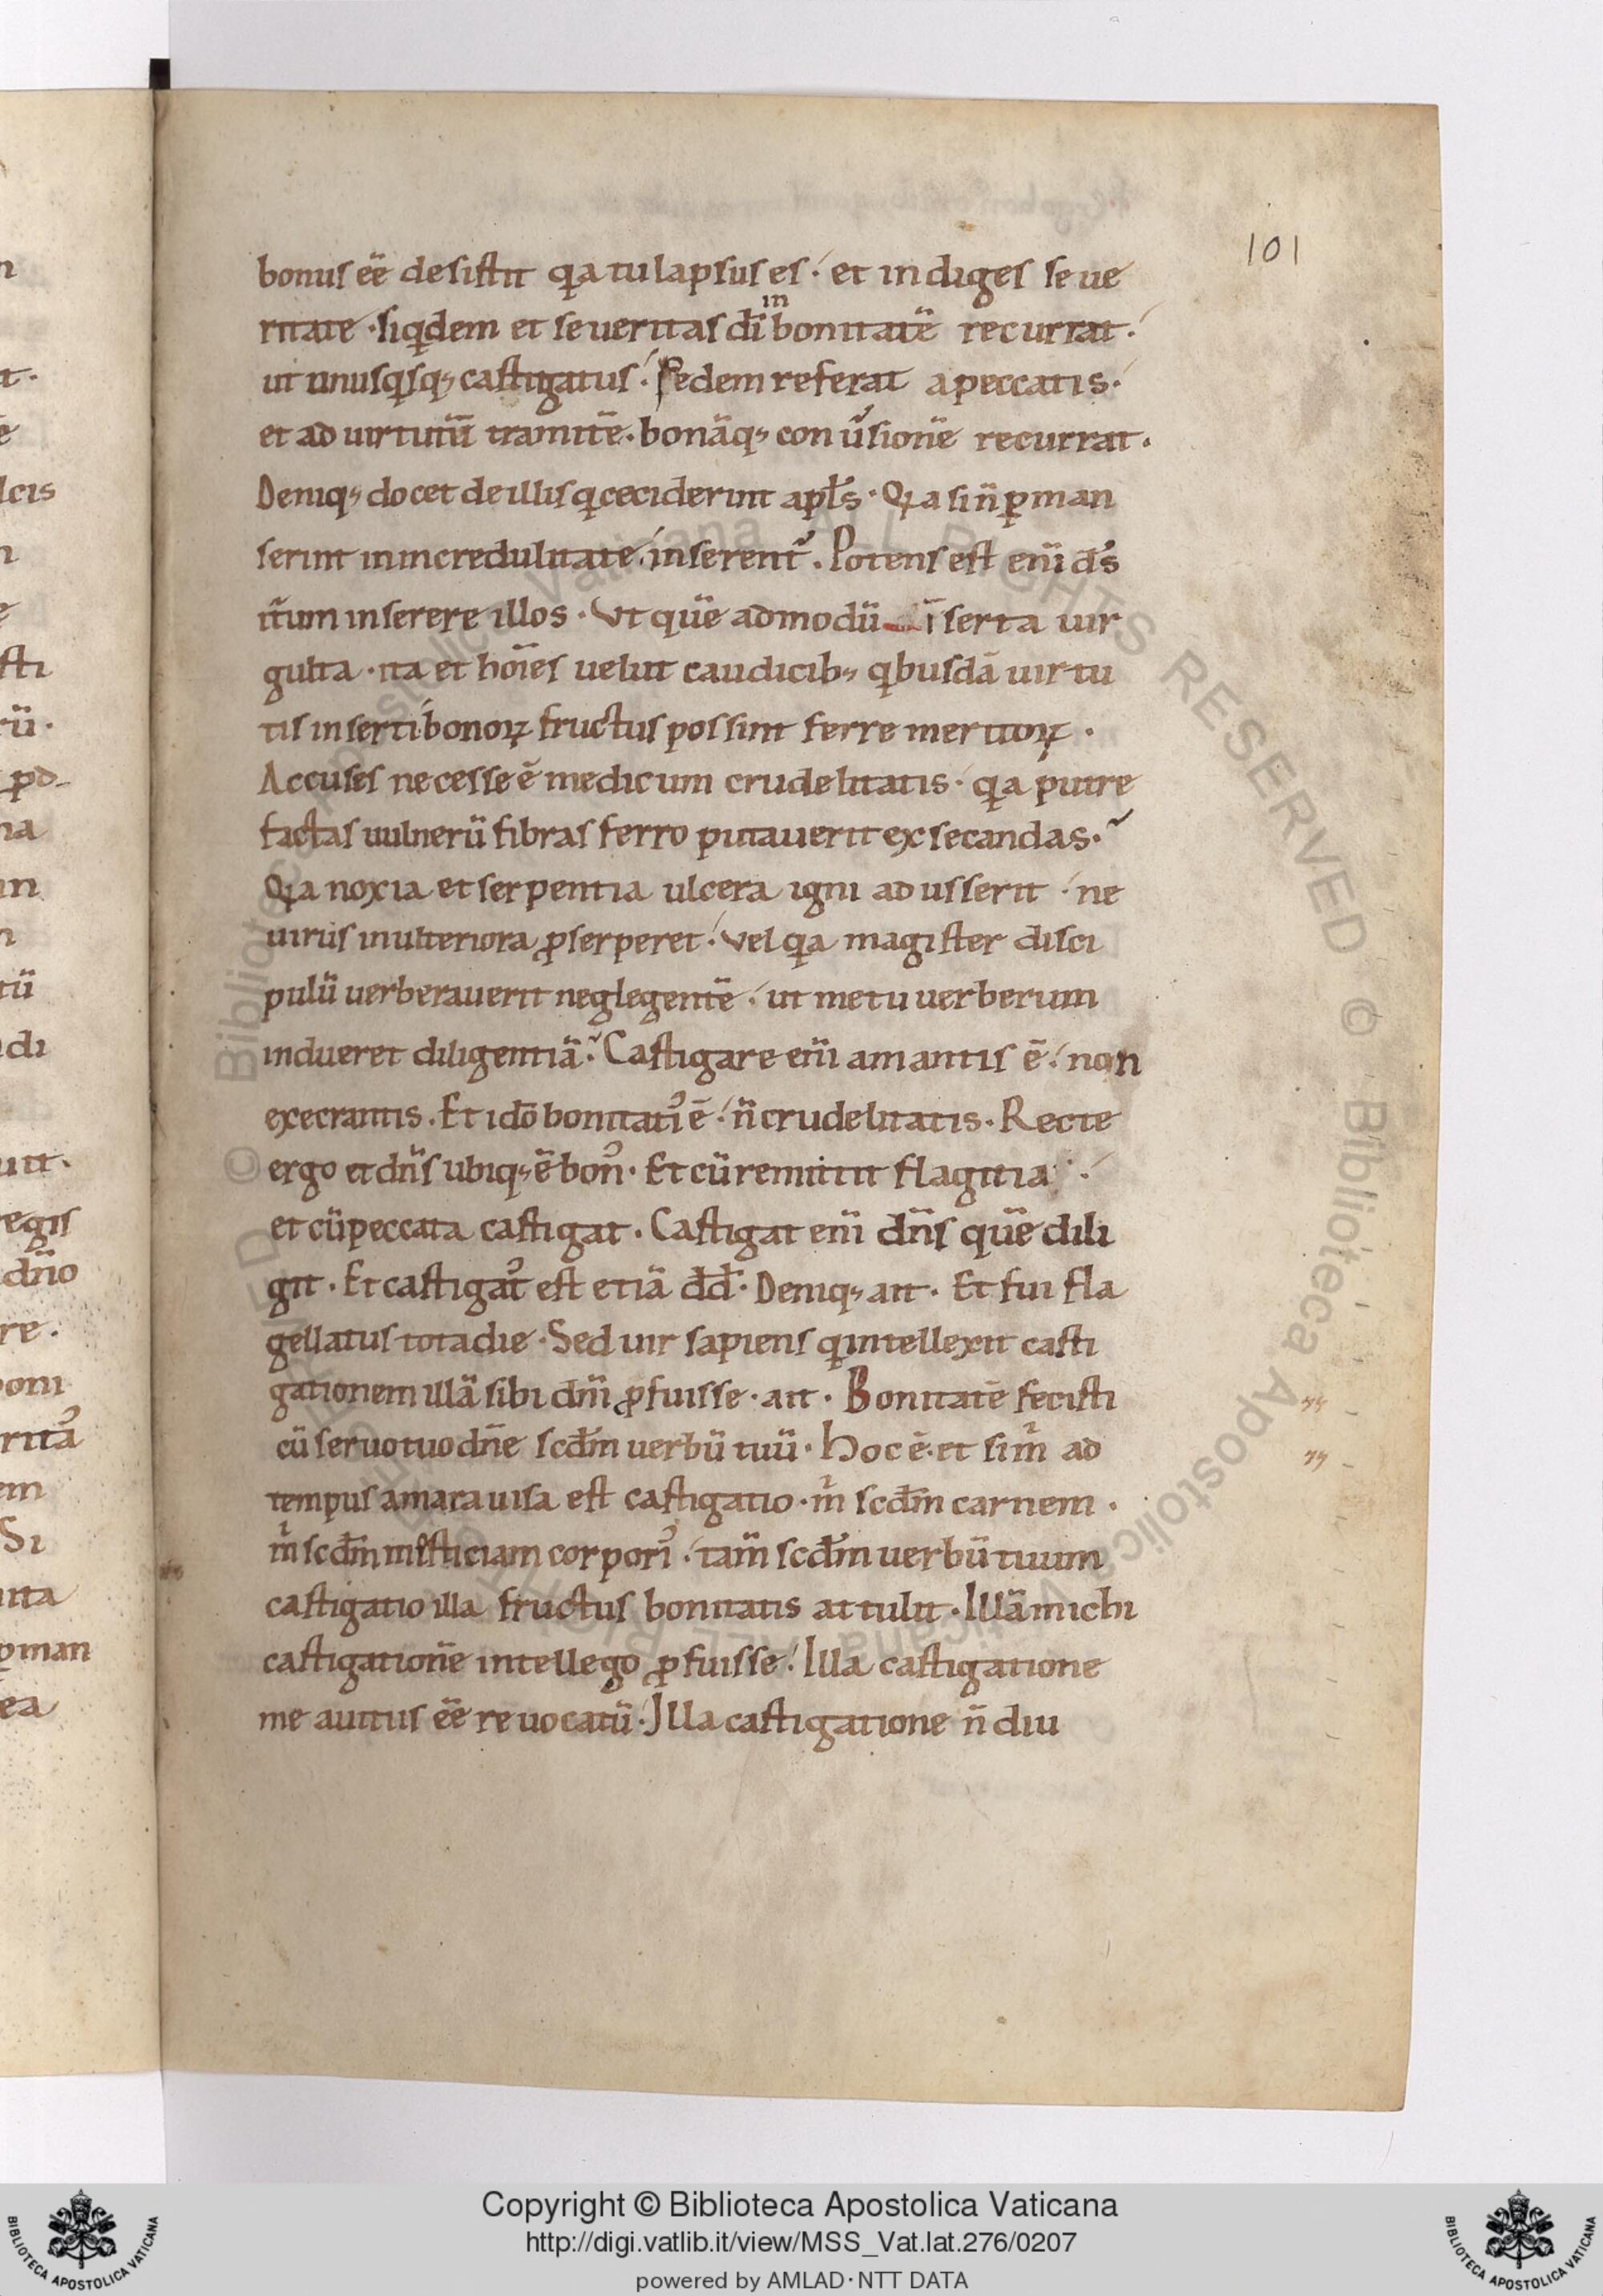 101
bonus eē desistit qa tu lapsus es ·́ et indiges seue
ritate · siqdem et seueritas dī in bonitatē recurrat ·́
ut unusqsq; castigatus ·́ Pedem referat a peccatis ·́
et ad uirtutū tramitē · bonāq; conūsionē recurrat ·
Deniq; docet de illis q ceciderint apls · Qa si n̄ pman
serint in incredulitate ·́ inserent᷑ . Potens est eni ds
it̄um inserere illos · Vt quē admodū īserta uir
gulta · ita et hoīes uelut caudicib; qbusdā uirtu
tis inserti ́bonoꝝ fructus possint ferre meritoꝝ ·
Accuses necesse ē medicum crudelitatis · qa putre
factas uulnerū fibras ferro putauerit exsecandas ·᷉
Qa noxia et serpentia ulcera igni adusserit ·́ ne
uirus in ulteriora ꝓserperet ·́ vel qa magister disci
pulū uerberauerit neglegentē ·́ ut metu uerberum
indueret diligentiā ·᷉ Castigare eni amantis ē ·́ non
execrantis . Et idō bonitatiꝰ ē ·́ n̄ crudelitatis . Recte
ergo et dn̄s ubiq; ē bonꝰ · Et cū remittit flagitia ·́
et cū peccata castigat . Castigat eni dn̄s quē dili
git . Et castigatꝰ est etiā dd̄ · Deniq; ait . Et fui fla
gellatus tota die · Sed uir sapiens q intellexit casti
gationem illā sibi dnī ꝓfuisse · ait · Bonitatē fecisti
cū seruo tuo dn̄e scdm uerbū tuū · Hoc ē · et si mͥ ad
tempus amara uisa est castigatio · mͥ scdm carnem .
mͥ scdm mistitiam corporiꝰ ·́ tam̄ scdm uerbū tuum
castigatio illa fructus bonitatis attulit · Illā michi
castigationē intellego ꝓfuisse ·́ Illa castigatione
me auitus eē reuocatū · Illa castigatione n̄ diu
Copyright © Biblioteca Apostolica Vaticana
http://digi.vatlib.it/view/MSS_Vat.lat.276/0207
powered by AMLAD·NTT DATA